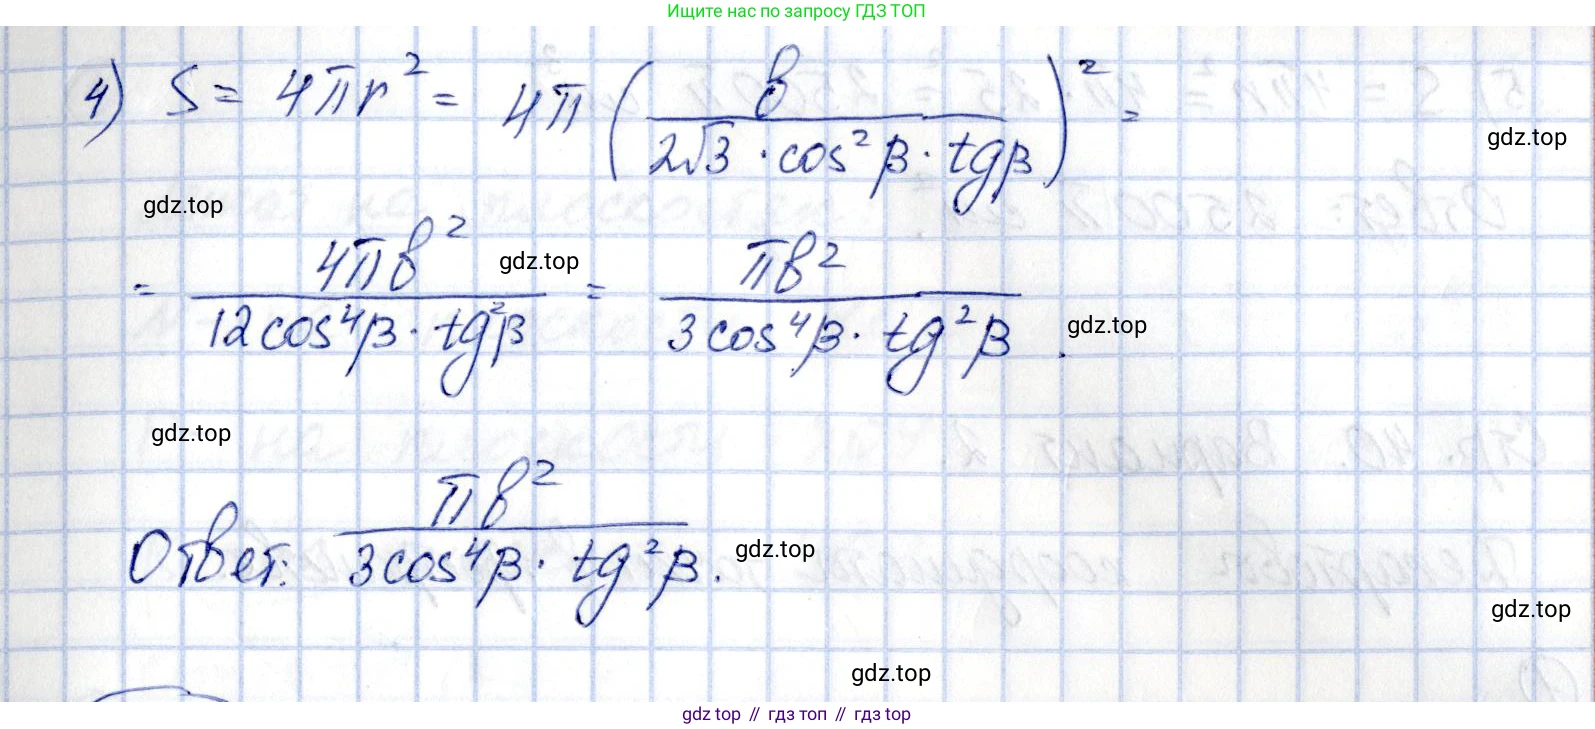 Ищите нас по запросу ГДЗ ТОП
4) S = 4πr² = 4π(в / (2√3 · cos²β · tgβ))² =
gdz.top
gdz.top
= 4πв² / (12cos⁴β · tg²β) = πв² / (3cos⁴β · tg²β).
gdz.top
gdz.top
gdz.top
Ответ: πв² / (3cos⁴β · tg²β).
gdz.top
gdz.top
gdz.top
gdz top // гдз топ // gdz top